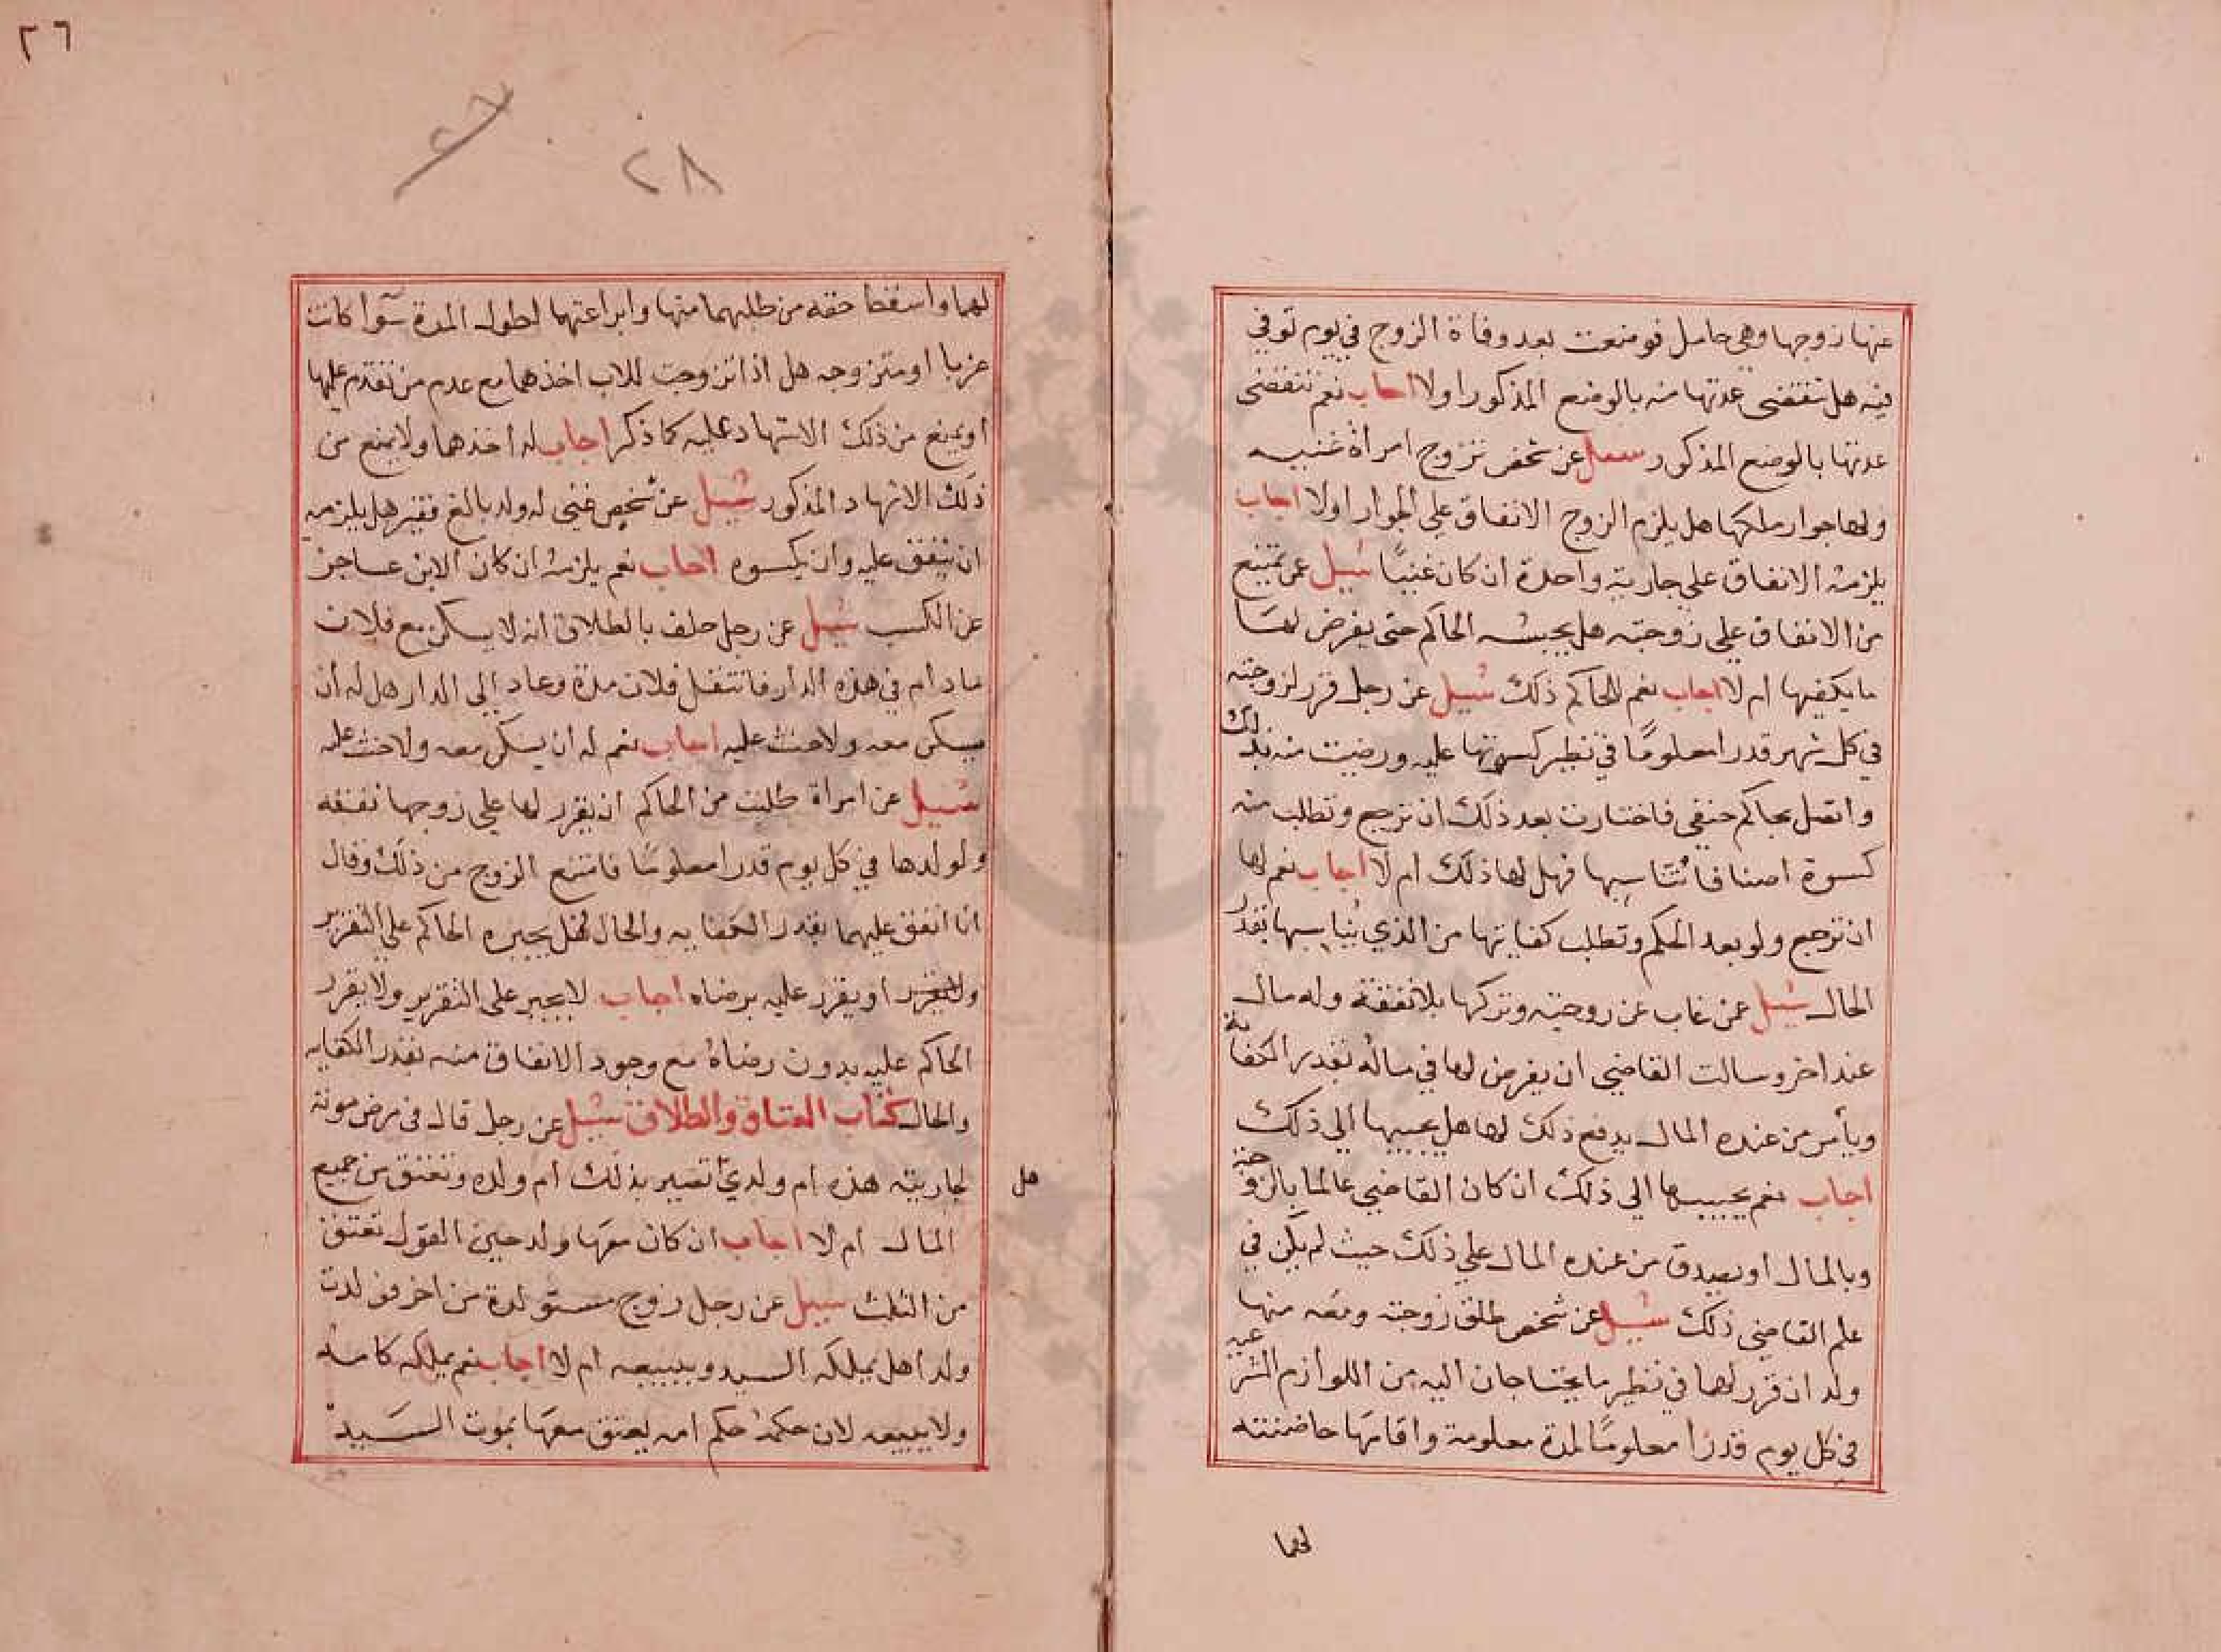 عنها زوجها وهي حامل فوضعت بعد وفاة الزوج في يوم توفي
فيه هل تنقضي عدتها منه بالوضع المذكور اولا اجاب نعم تنقضي
عدتها بالوضع المذكور سئل عن شخص تزوج امراة غنيه
ولها جوار ملكها هل يلزم الزوج الانفاق علي الجوار اولا اجاب
يلزمه الانفاق علي جارية واحدة ان كان غنيا سئل عمن يمتنع
من الانفاق علي زوجته هل يحبسه الحاكم حتى يفرض لها
ما يكفيها ام لا اجاب نعم للحاكم ذلك سئل عن رجل قرر لزوجته
في كل شهر قدرا معلوما في نظير كسوتها عليه ورضيت منه بذلك
واتصل بحاكم حنفي فاختارت بعد ذلك ان ترجع وتطلب منه
كسوة اصنافا تناسبها فهل لها ذلك ام لا اجاب نعم لها
ان ترجع ولو بعد الحكم وتطلب كفايتها من الذي يناسبها بقدر
الحال سئل عمن غاب عن زوجته وتركها بلا نفقة وله مال
عند اخر وسالت القاضي ان يفرض لها في ماله بقدر الكفاية
ويأمر من عنده المال يدفع ذلك لها هل يجيبها الي ذلك
اجاب نعم يجيبها الي ذلك ان كان القاضي عالما بالزوجية
وبالمال او يصدق من عنده المال علي ذلك حيث لم يكن في
علم القاضي ذلك سئل عن شخص طلق زوجته ومعه منها
ولدان قرر لهما في نظير ما يحتاجان اليه من اللوازم الشرعيه
في كل يوم قدرا معلوما لمدة معلومة واقامها حاضنته
لهما
٢٦
٢٨
لهما واسقط حقه من طلبهما منها وابراعتهما لطول المدة سوآ كانت
عزبا او متزوجه هل اذا تزوجت للاب اخذهما مع عدم من تقدم عليها
او يمنع من ذلك الاشهاد عليه كما ذكر اجاب له اخذهما ولا يمنع من
ذلك الاشهاد المذكور سئل عن شخص غني له ولد بالغ فقير هل يلزمه
ان ينفق عليه وان يكسوه اجاب نعم يلزمه ان كان الابن عاجز
عن الكسب سئل عن رجل حلف بالطلاق انه لا يسكن مع فلان
مادام في هذه الدار فانتقل فلان مدة وعاد الي الدار هل له أن
يسكن معه ولا حنث عليه اجاب نعم له ان يسكن معه ولا حنث عليه
سئل عن امراة طلبت من الحاكم ان يقرر لها علي زوجها نفقه
ولولدها في كل يوم قدرا معلوما فامتنع الزوج من ذلك وقال
انا انفق عليهما بقدر الكفايه والحال فهل يجبره الحاكم علي التقرير
او يقرر عليه برضاه اجاب لا يجبر على التقرير ولا يقرر
الحاكم عليه بدون رضاه مع وجود الانفاق منه بقدر الكفايه
والحال كتاب العتاق والطلاق سئل عن رجل قال في مرض موته
لجاريته هذه ام ولدي تصير بذلك ام ولده وتعتق من جميع
هل
المال ام لا اجاب ان كان معها ولد حين القول تعتق
من الثلث سئل عن رجل زوج مستولدة من اخر فولدت
ولدا هل يملكه السيد ويبيعه ام لا اجاب نعم يملكه كامه
ولا يبيعه لان حكمه حكم امه يعتق معها بموت السيد